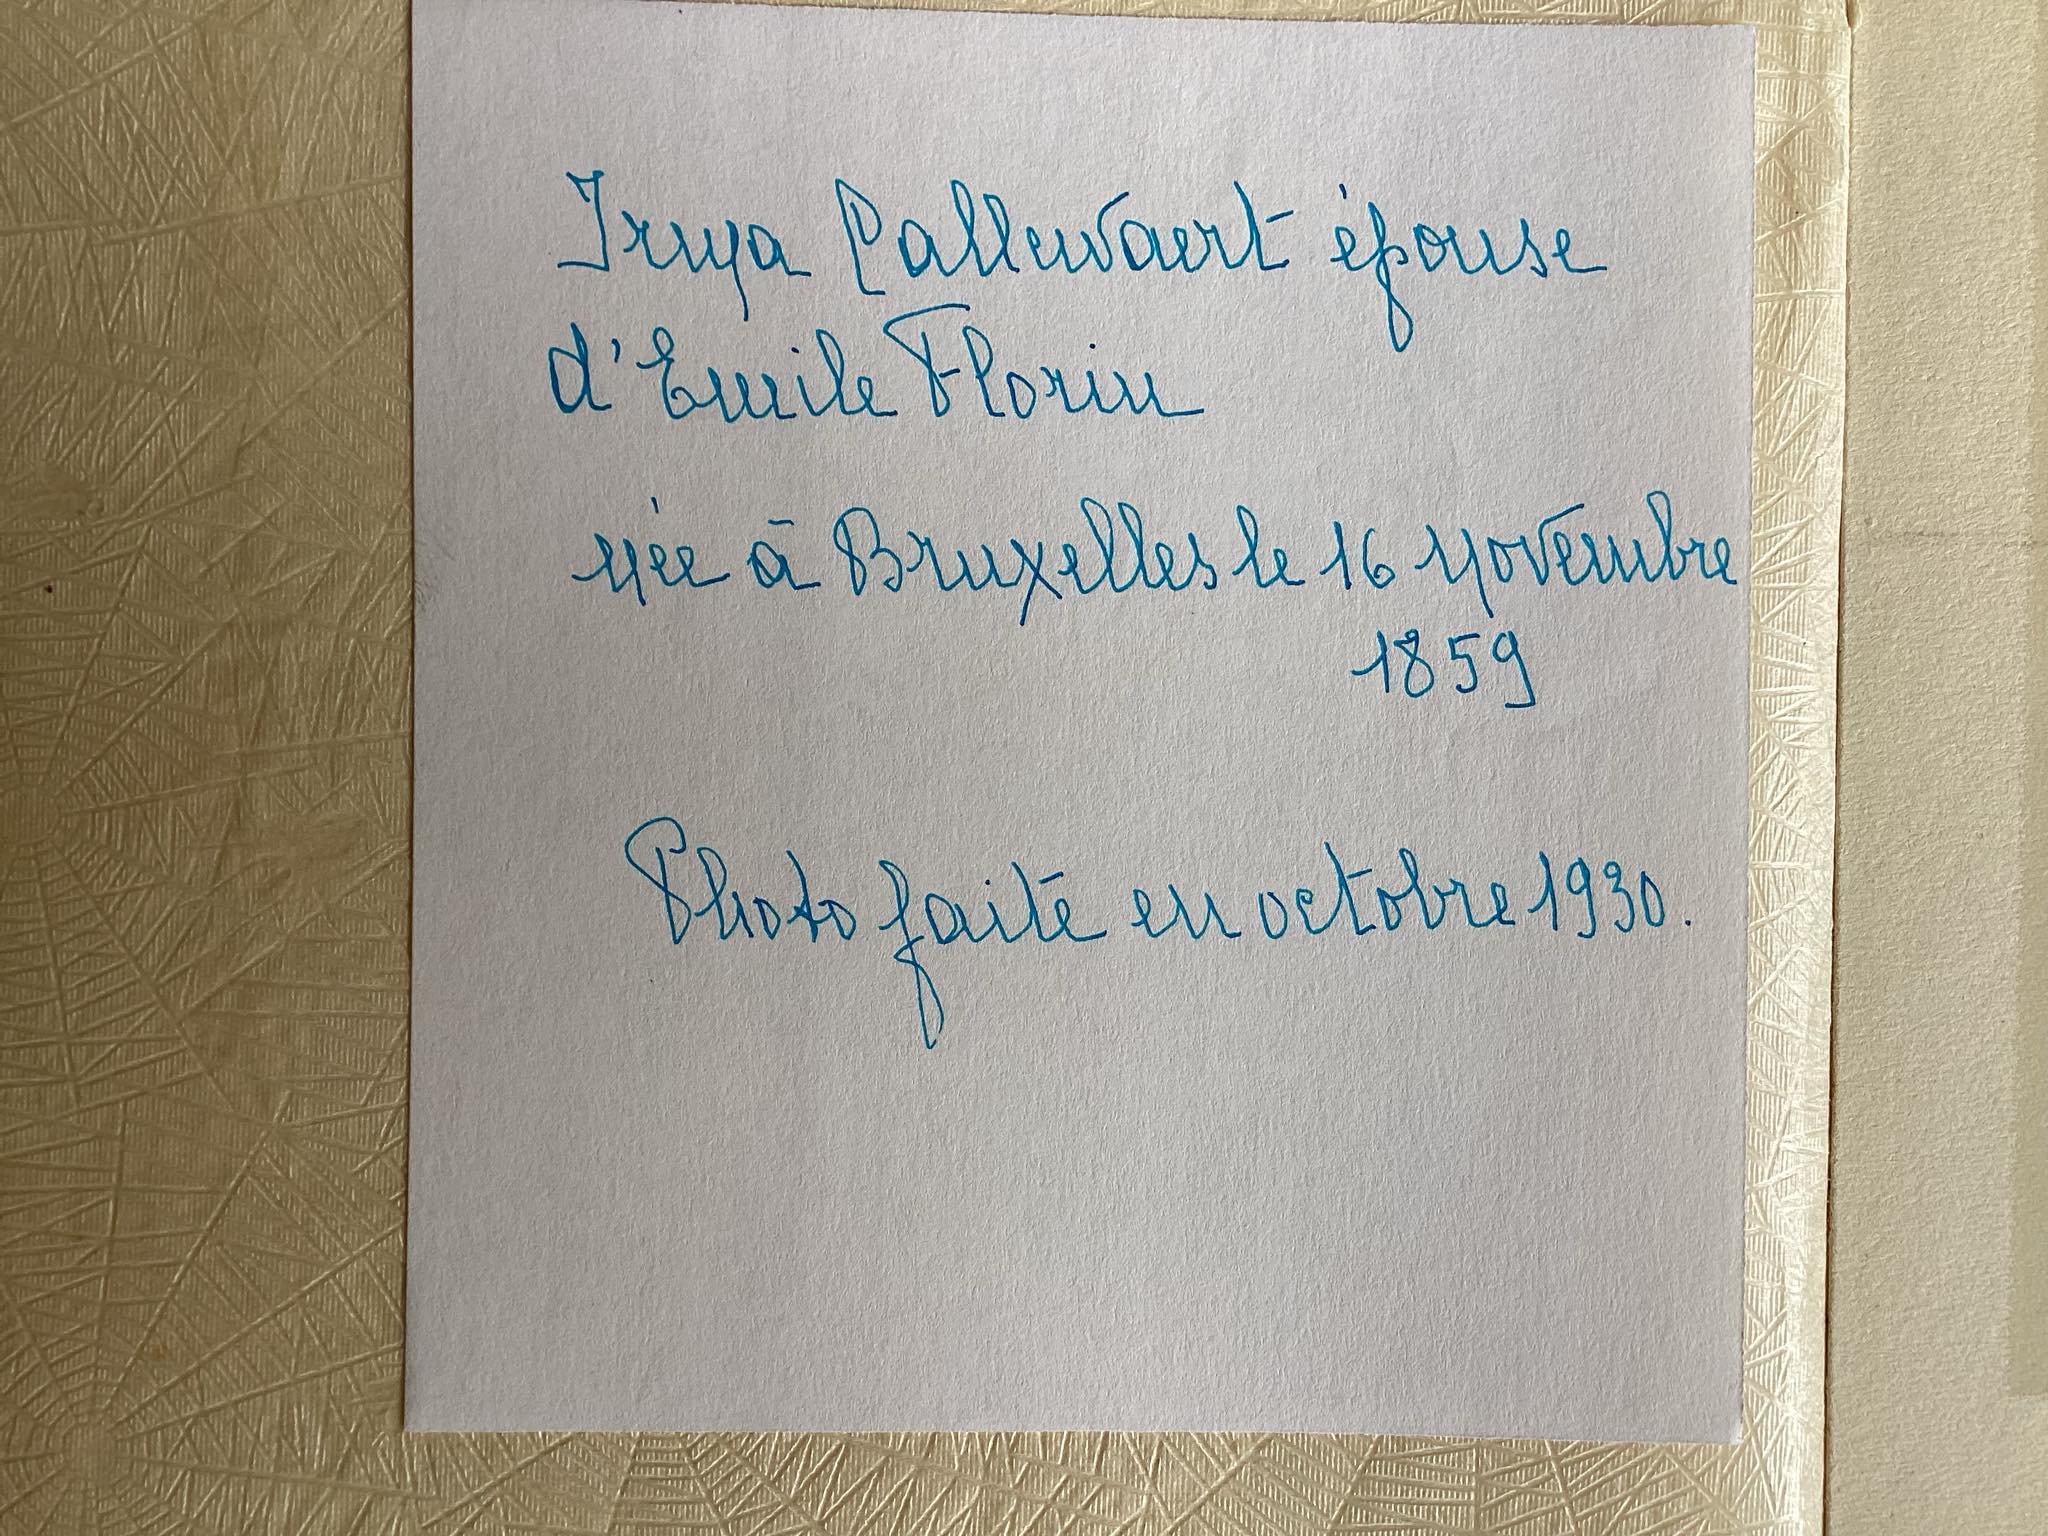 Irma Callewaert épouse
d'Emile Florin
née à Bruxelles le 16 novembre
1859
Photo faite en octobre 1930.